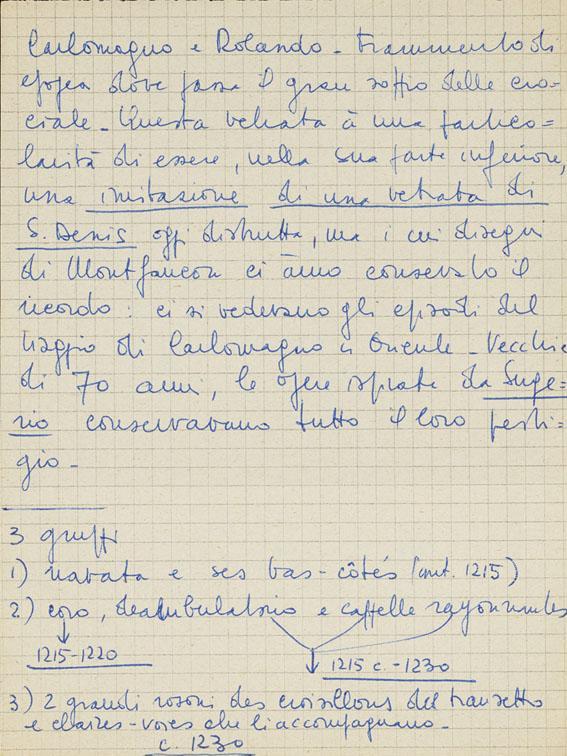 Carlomagno e Rolando - Frammento di
epopea dove passa il gran soffio delle cro-
ciate - Questa vetrata à una partico=
larità di essere, nella sua parte inferiore,
una imitazione di una vetrata di
S. Denis oggi distrutta, ma i cui disegni
di Montfaucon ci ànno conservato il
ricordo: ci si vedevano gli episodi del
viaggio di Carlomagno in Oriente - Vecchie
di 70 anni, le opere ispirate da Suge=
rio conservavano tutto il loro presti=
gio -
3 gruppi
1) navata e ses bas-côtés (ant. 1215)
2) coro, deambulatorio e cappelle rayonnantes
1215-1220
1215 c. - 1230
3) 2 grandi rosoni des croisillons del transetto
e claires-voies che li accompagnano -
c. 1230